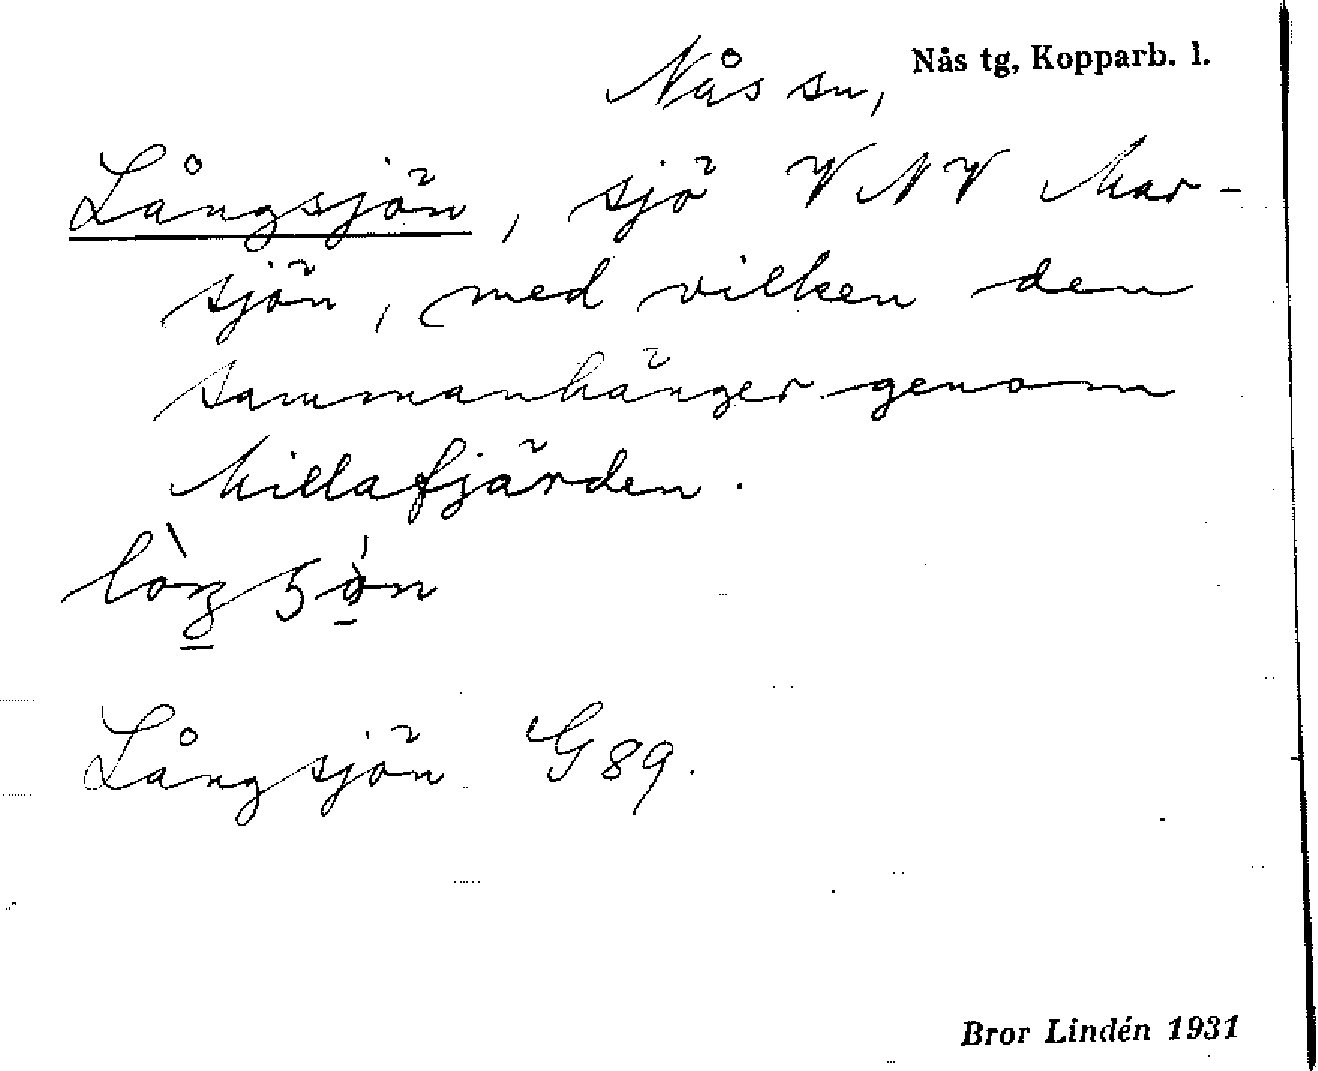 Nås sn, Nås tg, Kopparb. l.
Långsjön, sjö VNV Mar-
sjön, med vilken den
sammanhänger genom
Millafjärden.
Långsjön G 89.
Bror Lindén 1931